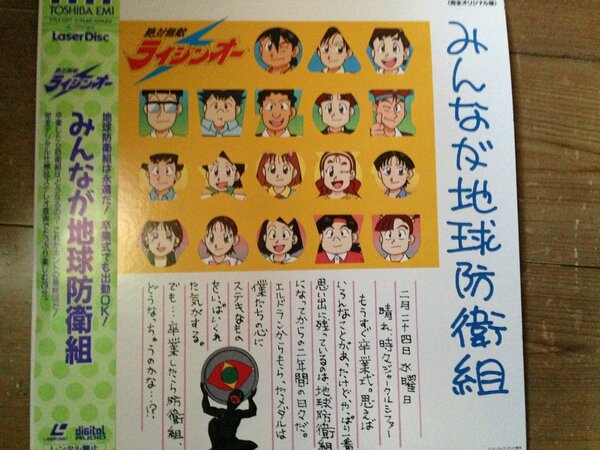 TOSHIBA EMI
LaserDisc
絶対無敵
ライジンオー
みんなが地球防衛組
地球防衛組は永遠だ!卒業式でも出動OK!
LASER DISC
digital
AUDIO
レンタル禁止
絶対無敵
ライジンオー
(完全オリジナル版)
みんなが地球防衛組
二月二十四日 水曜日
晴れ時々ジャークルシファー
もうすぐ卒業式。思えば
いろんなことがあったけどやっぱり一番
思い出に残っているのは地球防衛組
になってからの二年間の日々だ。
エルドランからもらったメダルは
僕たちの心に
ステキなもの
をいっぱいくれ
た気がする。
でも…卒業したら防衛組、
どうなっちゃうのかな…!?